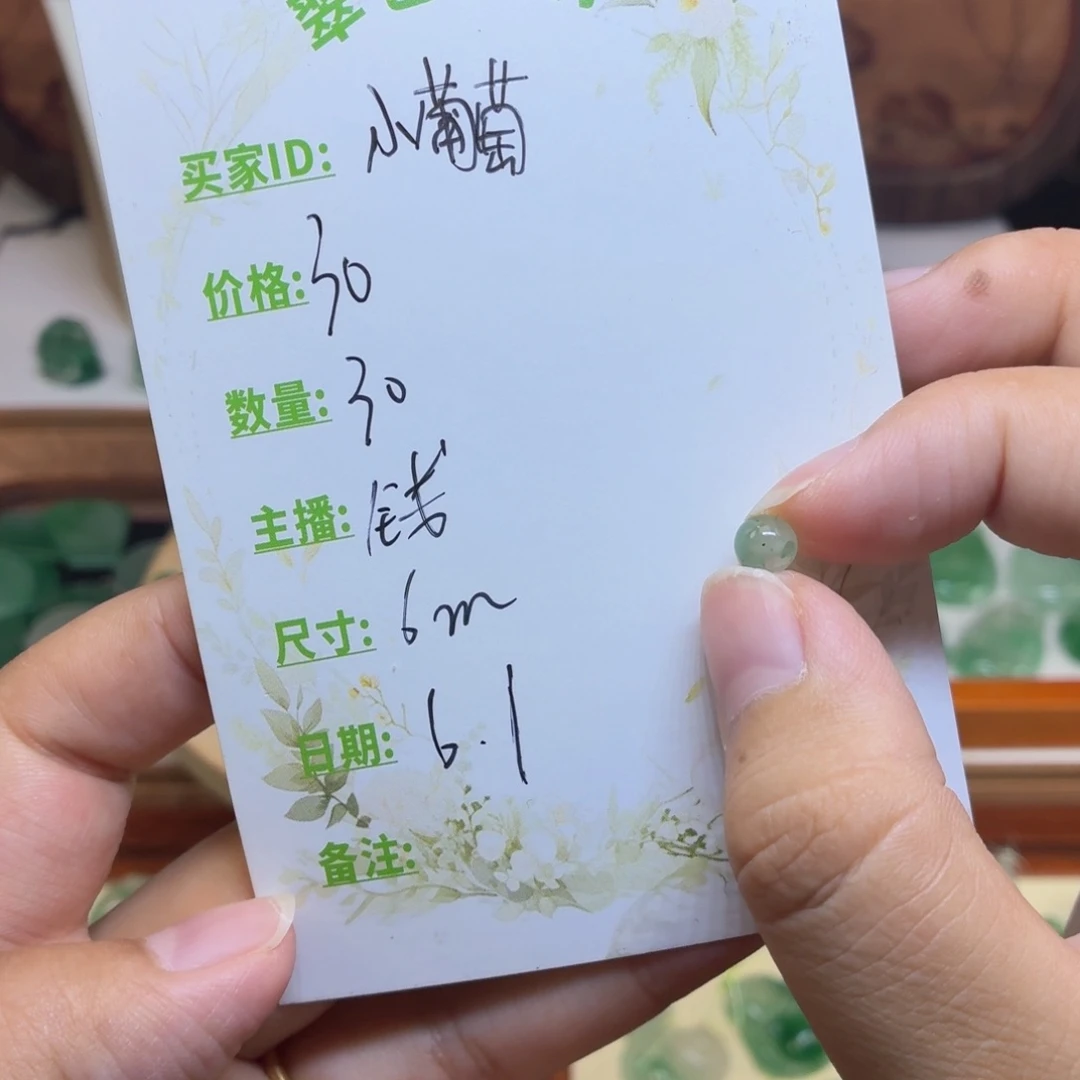 买家ID: 小葡萄
价格: 30
数量: 30
主播: 钱
尺寸: 6m
日期: 6.1
备注: